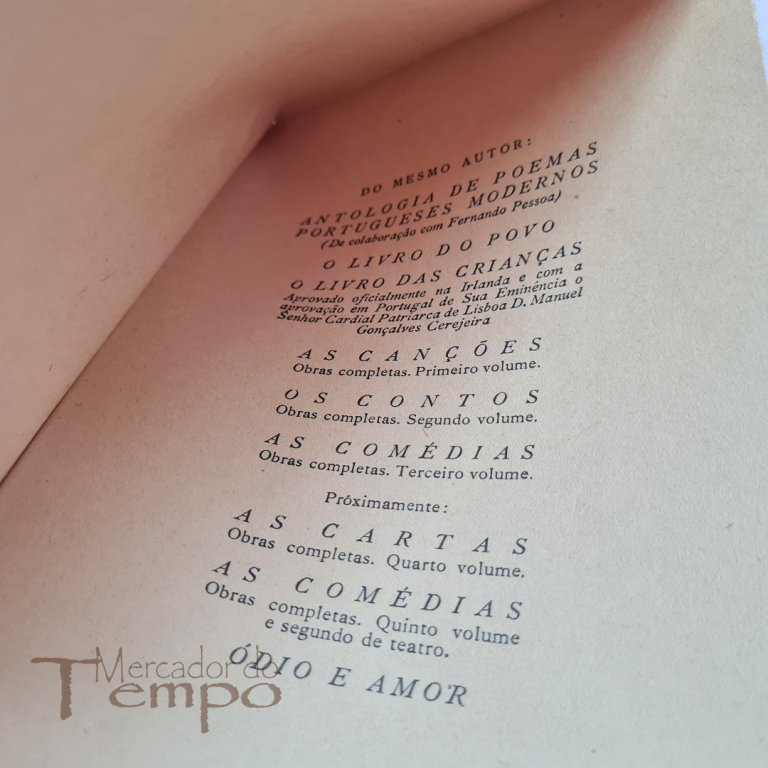 DO MESMO AUTOR:
ANTOLOGIA DE POEMAS
PORTUGUESES MODERNOS
(De colaboração com Fernando Pessoa)
O LIVRO DO POVO
O LIVRO DAS CRIANÇAS
Aprovado oficialmente na Irlanda e com a
aprovação em Portugal de Sua Eminência o
Senhor Cardial Patriarca de Lisboa D. Manuel
Gonçalves Cerejeira
AS CANÇÕES
Obras completas. Primeiro volume.
OS CONTOS
Obras completas. Segundo volume.
AS COMÉDIAS
Obras completas. Terceiro volume.
Próximamente:
AS CARTAS
Obras completas. Quarto volume.
AS COMÉDIAS
Obras completas. Quinto volume
e segundo de teatro.
ÓDIO E AMOR
Mercador do
Tempo